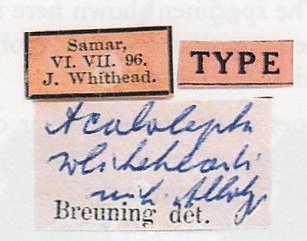 Samar,
VI. VII. 96.
J. Whithead.
TYPE
Acalolepta
whiteheadi
Breuning det.